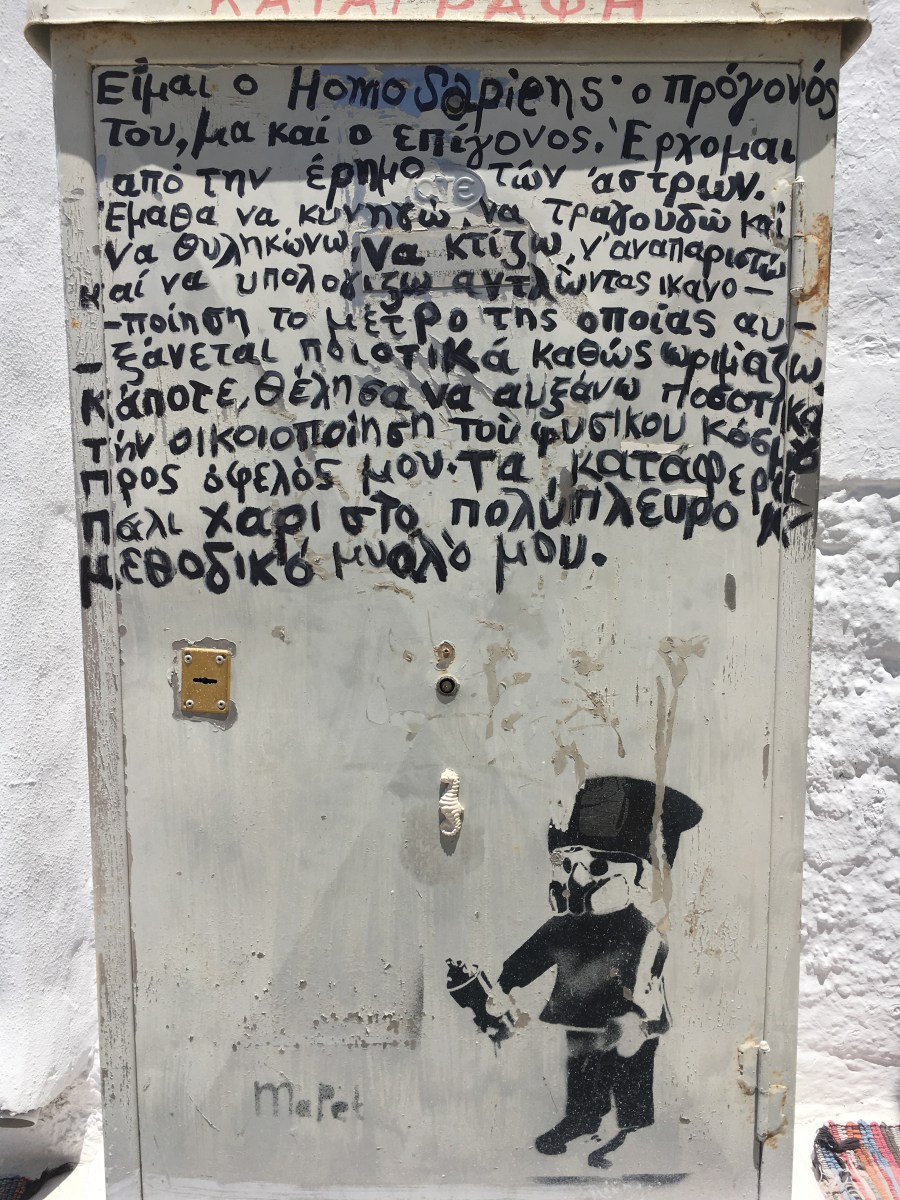 ΚΑΤΑΓΡΑΦΗ
Είμαι ο Homo Sapiens· ο πρόγονός
του, μα καί ο επίγονος. Έρχομαι
από την έρημο τών άστρων.
Έμαθα να κυνηγώ, να τραγουδώ καί
να θυληκώνω, να κτίζω, ν'αναπαριστώ
καί να υπολογίζω αντλώντας ικανο-
-ποίηση το μέτρο της οποίας αυ-
-ξάνεται ποιοτικά καθώς ωριμάζω
κάποτε, θέλησα να αυξάνω ποσοτικά
τήν οικοιοποίηση τού φυσικού κόσμου
προς όφελός μου. Τα κατάφερα
πάλι χάρι στο πολύπλευρο κ
μεθοδικό μυαλό μου.
ΟΤΕ
maPet